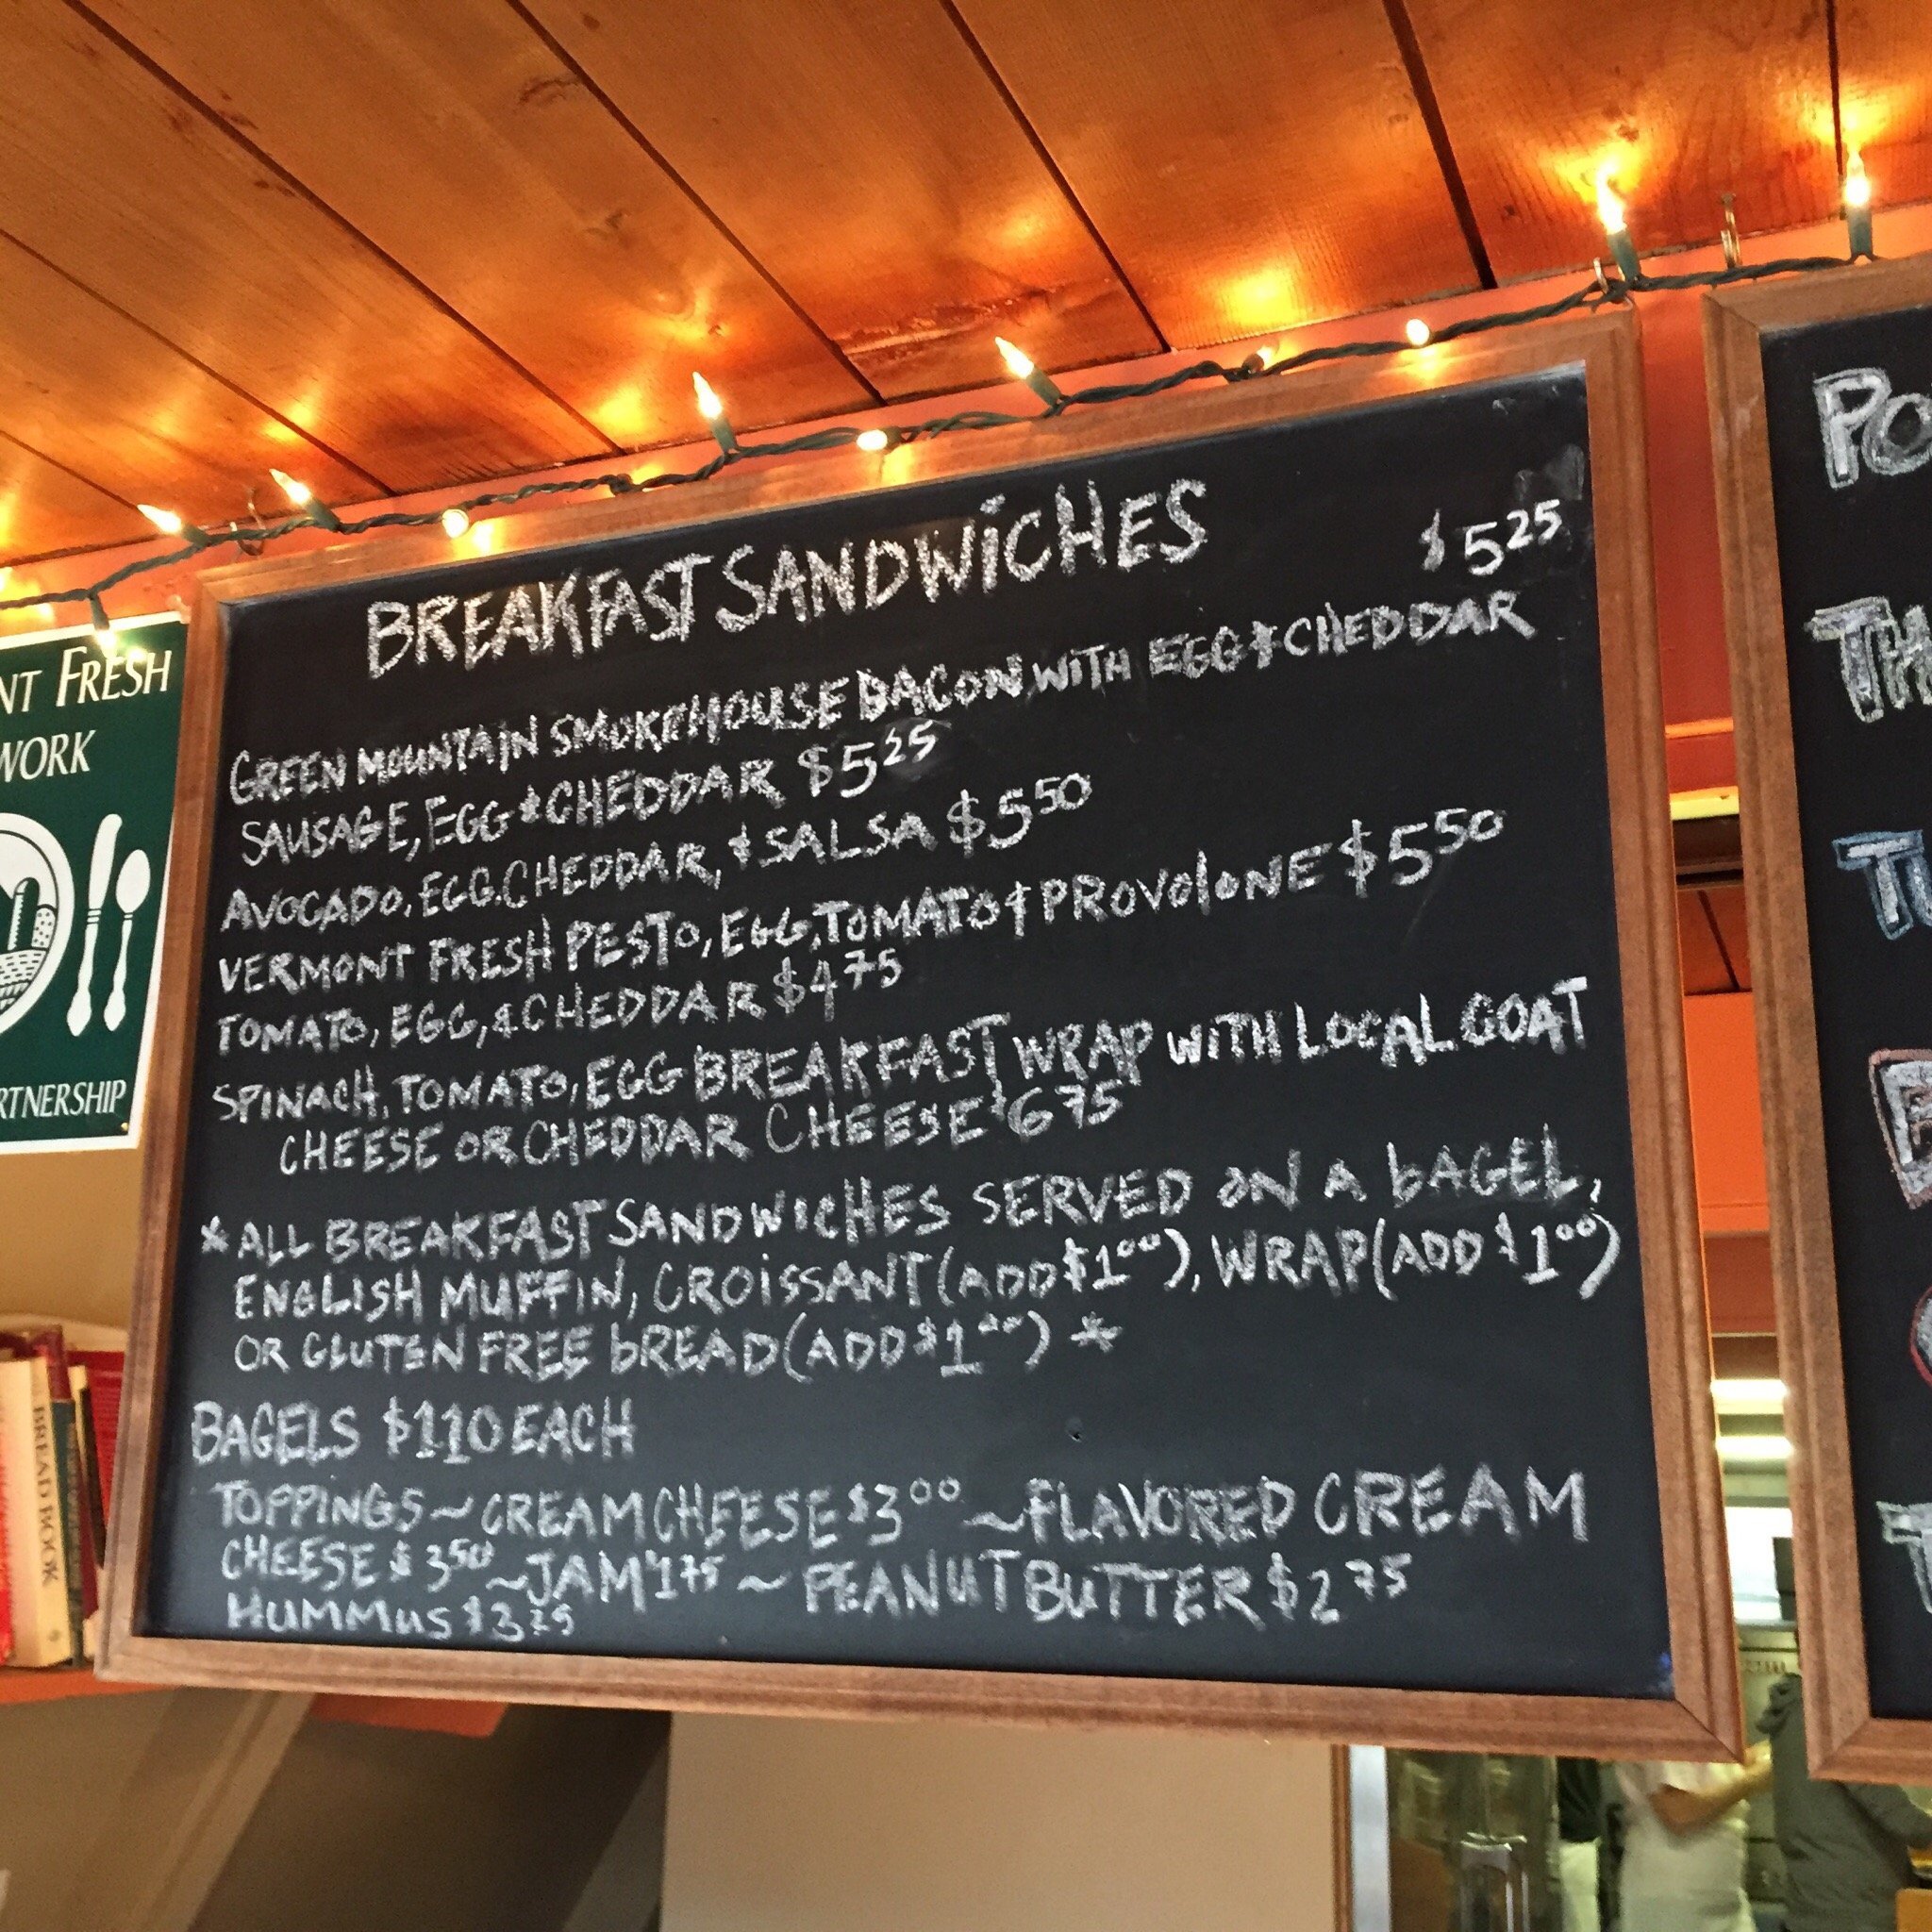 BREAKFAST SANDWICHES
$5 25
GREEN MOUNTAIN SMOKEHOUSE BACON WITH EGG & CHEDDAR
SAUSAGE, EGG & CHEDDAR $5 25
AVOCADO, EGG, CHEDDAR, & SALSA $5 50
VERMONT FRESH PESTO, EGG, TOMATO & PROVOLONE $5 50
TOMATO, EGG, & CHEDDAR $4 75
SPINACH, TOMATO, EGG BREAKFAST WRAP WITH LOCAL GOAT
CHEESE OR CHEDDAR CHEESE $6 75
*ALL BREAKFAST SANDWICHES SERVED ON A BAGEL,
ENGLISH MUFFIN, CROISSANT (ADD $1 00), WRAP (ADD $1 00)
OR GLUTEN FREE BREAD (ADD $1 00) *
BAGELS $1 10 EACH
TOPPINGS ~ CREAM CHEESE $3 00 ~ FLAVORED CREAM
CHEESE $3 50 ~ JAM $1 75 ~ PEANUT BUTTER $2 75
HUMMUS $3 25
NT FRESH
WORK
RTNERSHIP
BREAD BOOK
PO
TH